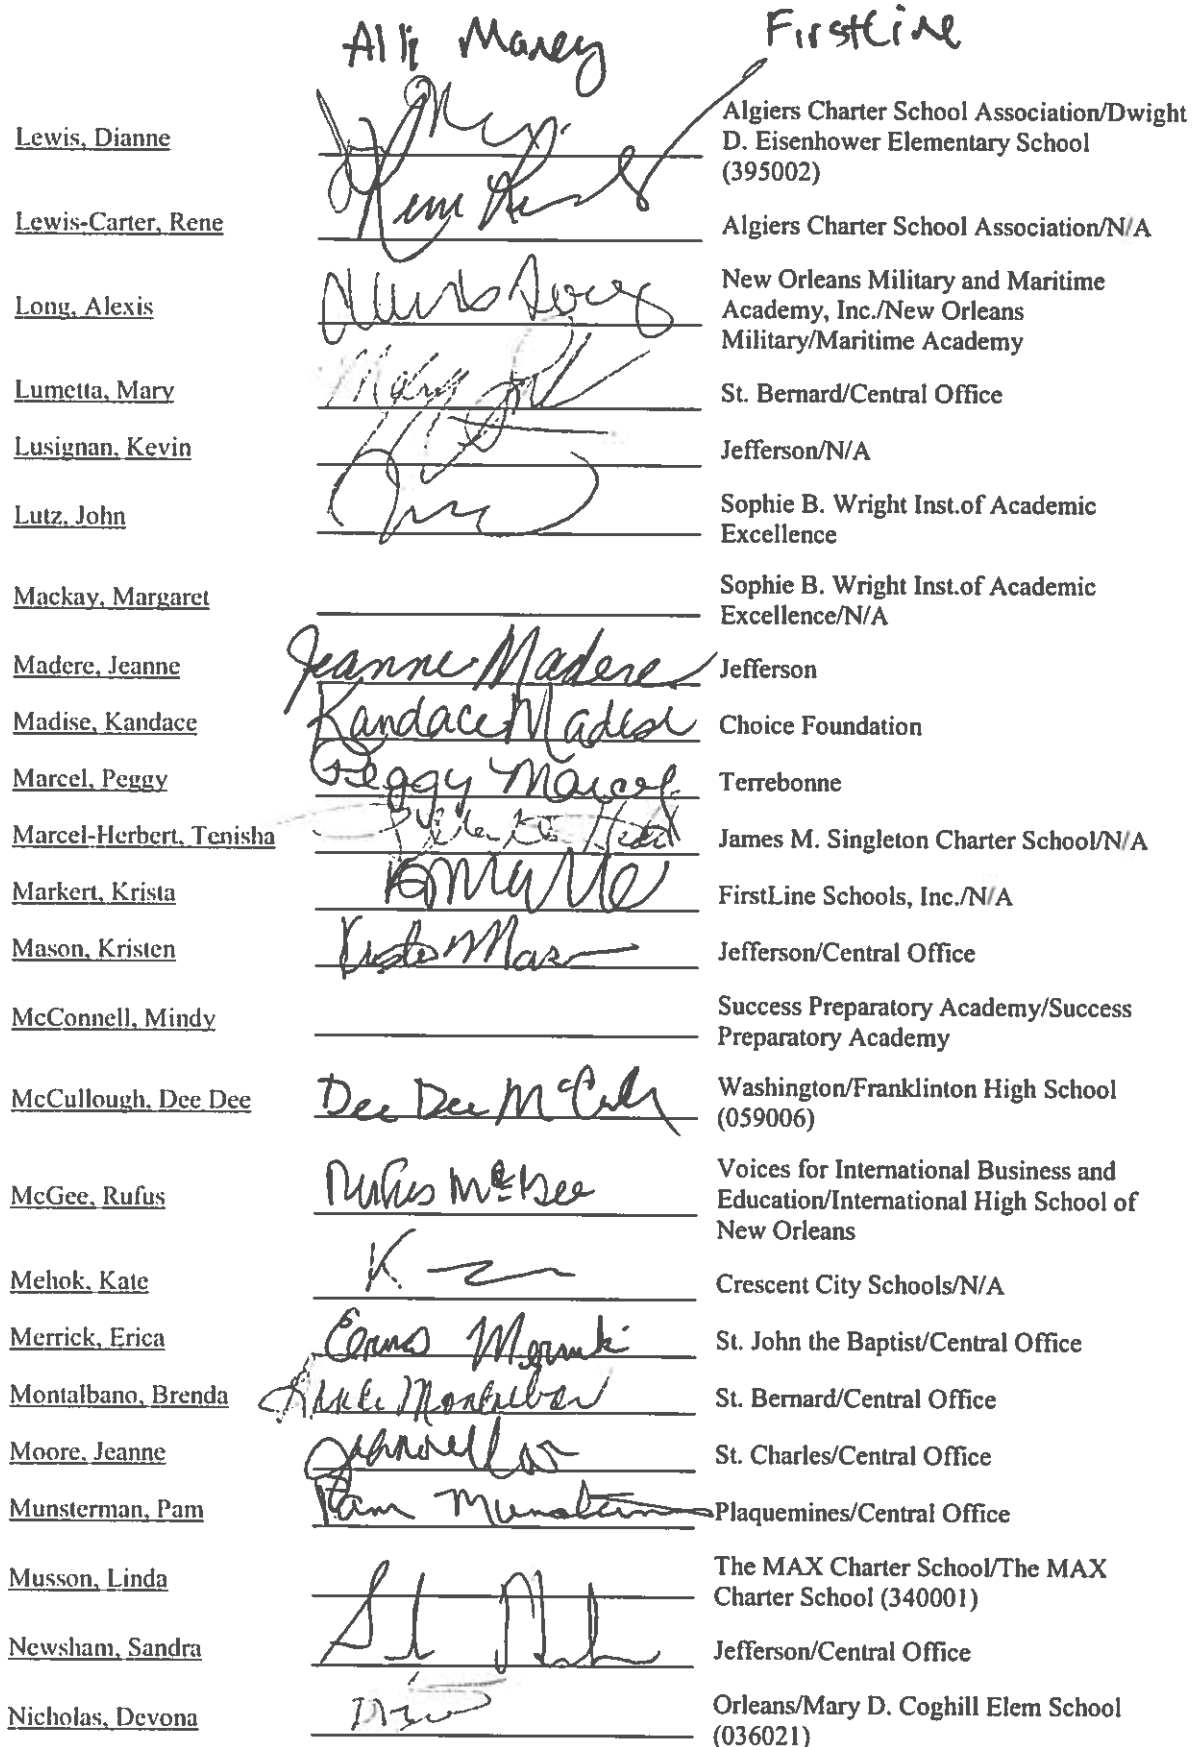 Alli Maney FirstLine
Lewis, Dianne Algiers Charter School Association/Dwight
D. Eisenhower Elementary School
(395002)
Lewis-Carter, Rene Algiers Charter School Association/N/A
Long, Alexis New Orleans Military and Maritime
Academy, Inc./New Orleans
Military/Maritime Academy
Lumetta, Mary Mary St. Bernard/Central Office
Lusignan, Kevin Jefferson/N/A
Lutz, John Sophie B. Wright Inst.of Academic
Excellence
Mackay, Margaret Sophie B. Wright Inst.of Academic
Excellence/N/A
Madere, Jeanne Jeanne Madere Jefferson
Madise, Kandace Kandace Madise Choice Foundation
Marcel, Peggy Peggy Marcel Terrebonne
Marcel-Herbert, Tenisha James M. Singleton Charter School/N/A
Markert, Krista FirstLine Schools, Inc./N/A
Mason, Kristen Jefferson/Central Office
McConnell, Mindy Success Preparatory Academy/Success
Preparatory Academy
McCullough, Dee Dee Dee Dee Washington/Franklinton High School
(059006)
McGee, Rufus Rufus McGee Voices for International Business and
Education/International High School of
New Orleans
Mehok, Kate K Crescent City Schools/N/A
Merrick, Erica St. John the Baptist/Central Office
Montalbano, Brenda St. Bernard/Central Office
Moore, Jeanne St. Charles/Central Office
Munsterman, Pam Pam Munsterman Plaquemines/Central Office
Musson, Linda The MAX Charter School/The MAX
Charter School (340001)
Newsham, Sandra Jefferson/Central Office
Nicholas, Devona Orleans/Mary D. Coghill Elem School
(036021)